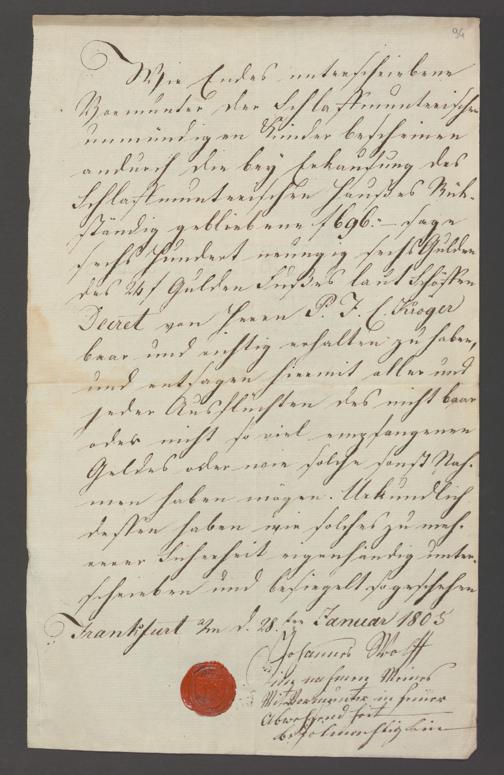 94
Wir Endes unterschriebene
Vormünder der Schlaffmunterischen
unmündigen Kinder bescheinen
andurch die bey Erkaufung des
Schlaffmunterischen Haußes Rük-
ständig gebliebene f 696:– sage
sechs Hundert neunzig sechs Gulden
des 24 f Gulden Fußes laut Schöffen
Decret von Herrn P. F. C. Kröger
baar und richtig erhalten zu haben,
und entsagen hiermit aller und
jeder Ausflüchten des nicht baar
oder nicht so viel empfangenen
Geldes oder wie solche sonst Nah-
men haben mögen. Urkundlich
dessen haben wir solches zu meh-
rerer Sicherheit eigenhändig unter-
schrieben und besiegelt so geschehen
Frankfurt d. 28.ten Januar 1805
Johannes Wolff
in nahmen Meines
Mit Vormünder in seiner
Abwesenheit